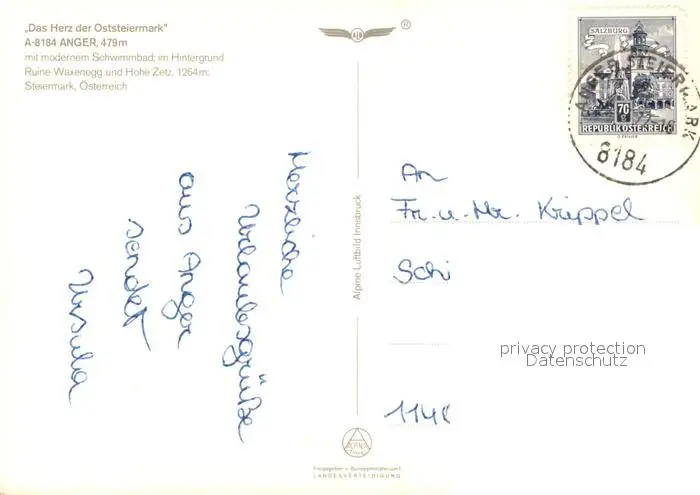 „Das Herz der Oststeiermark"
A-8184 ANGER, 479m
mit modernem Schwimmbad; im Hintergrund
Ruine Waxenegg und Hohe Zetz, 1264m;
Steiermark, Österreich
Herzliche
Urlaubsgrüße
aus Anger
sendet
Ursula
Alpine Luftbild Innsbruck
ALPINE
LANDESVERTEIDIGUNG
SALZBURG
70 g
REPUBLIK ÖSTERREICH
ANGER, STEIERMARK
8184
An
Fr. u. Hr. Krippel
Schi
114
privacy protection
Datenschutz
®